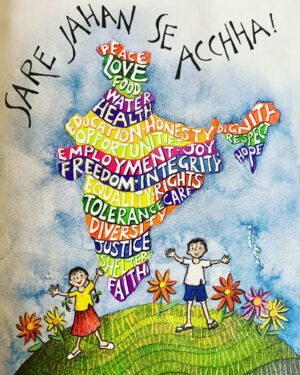 SARE JAHAN SE ACCHHA!
PEACE
LOVE
FOOD
WATER
HEALTH
EDUCATION·HONESTY
OPPORTUNITIES
EMPLOYMENT·JOY
FREEDOM·INTEGRITY
EQUALITY·RIGHTS
TOLERANCE CARE
DIVERSITY
JUSTICE
SHELTER
FAITH
DIGNITY
RESPECT
HOPE